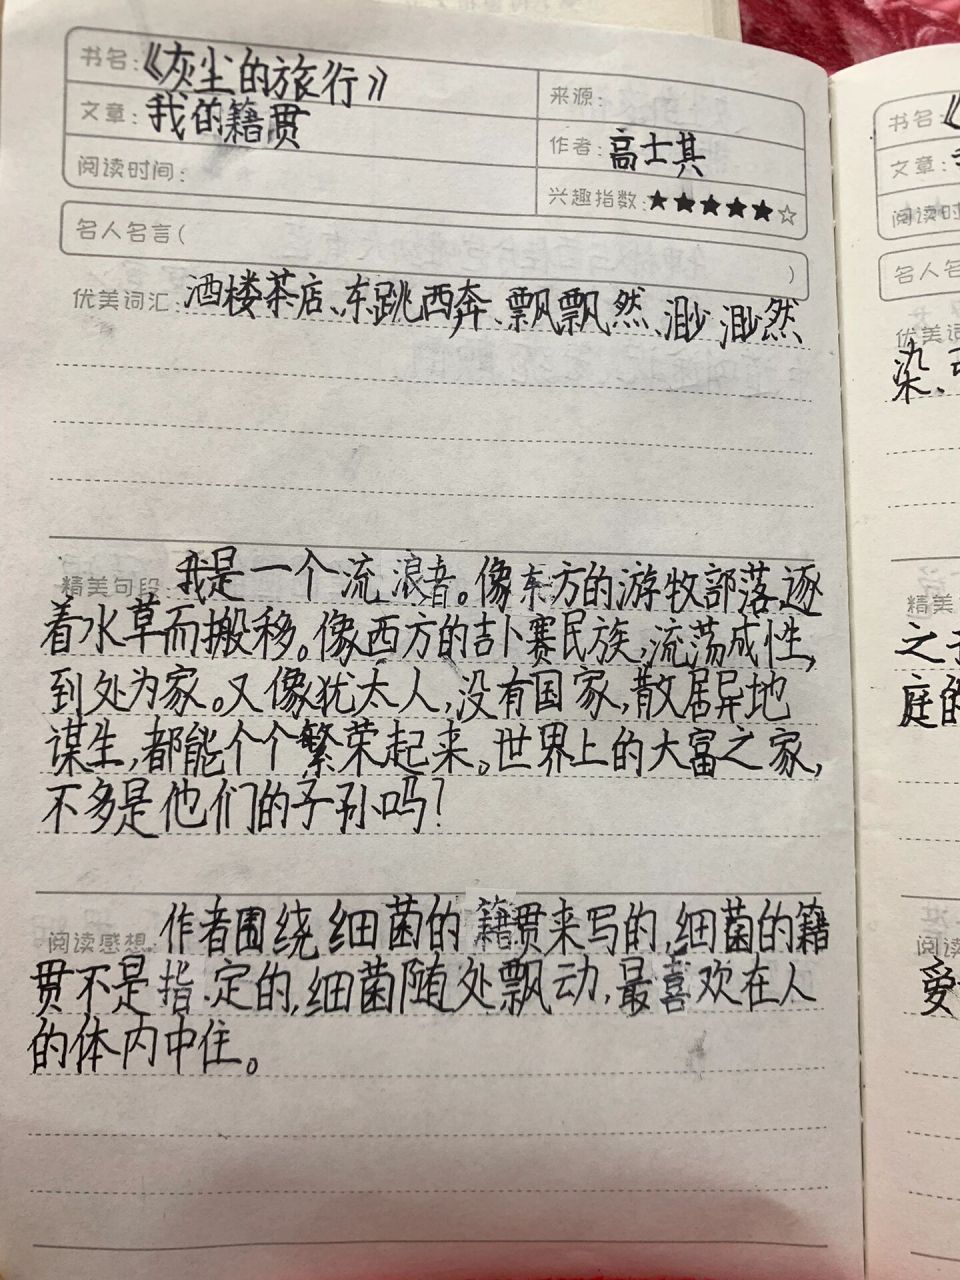 书名:《灰尘的旅行》
来源:
文章:我的籍贯
作者:高士其
阅读时间:
兴趣指数:★★★★★☆
名人名言( )
优美词汇:酒楼茶店、东跳西奔、飘飘然、渺渺然
精美句段:我是一个流浪音。像东方的游牧部落逐
着水草而搬移。像西方的吉卜赛民族,流荡成性,
到处为家。又像犹太人,没有国家,散居异地
谋生,都能个个繁荣起来。世界上的大富之家,
不多是他们的子孙吗?
阅读感想:作者围绕细菌的籍贯来写的,细菌的籍
贯不是指定的,细菌随处飘动,最喜欢在人
的体内中住。
书名:《
文章:
阅读时
名人名
优美词
染、
精美
之
庭的
阅读
爱